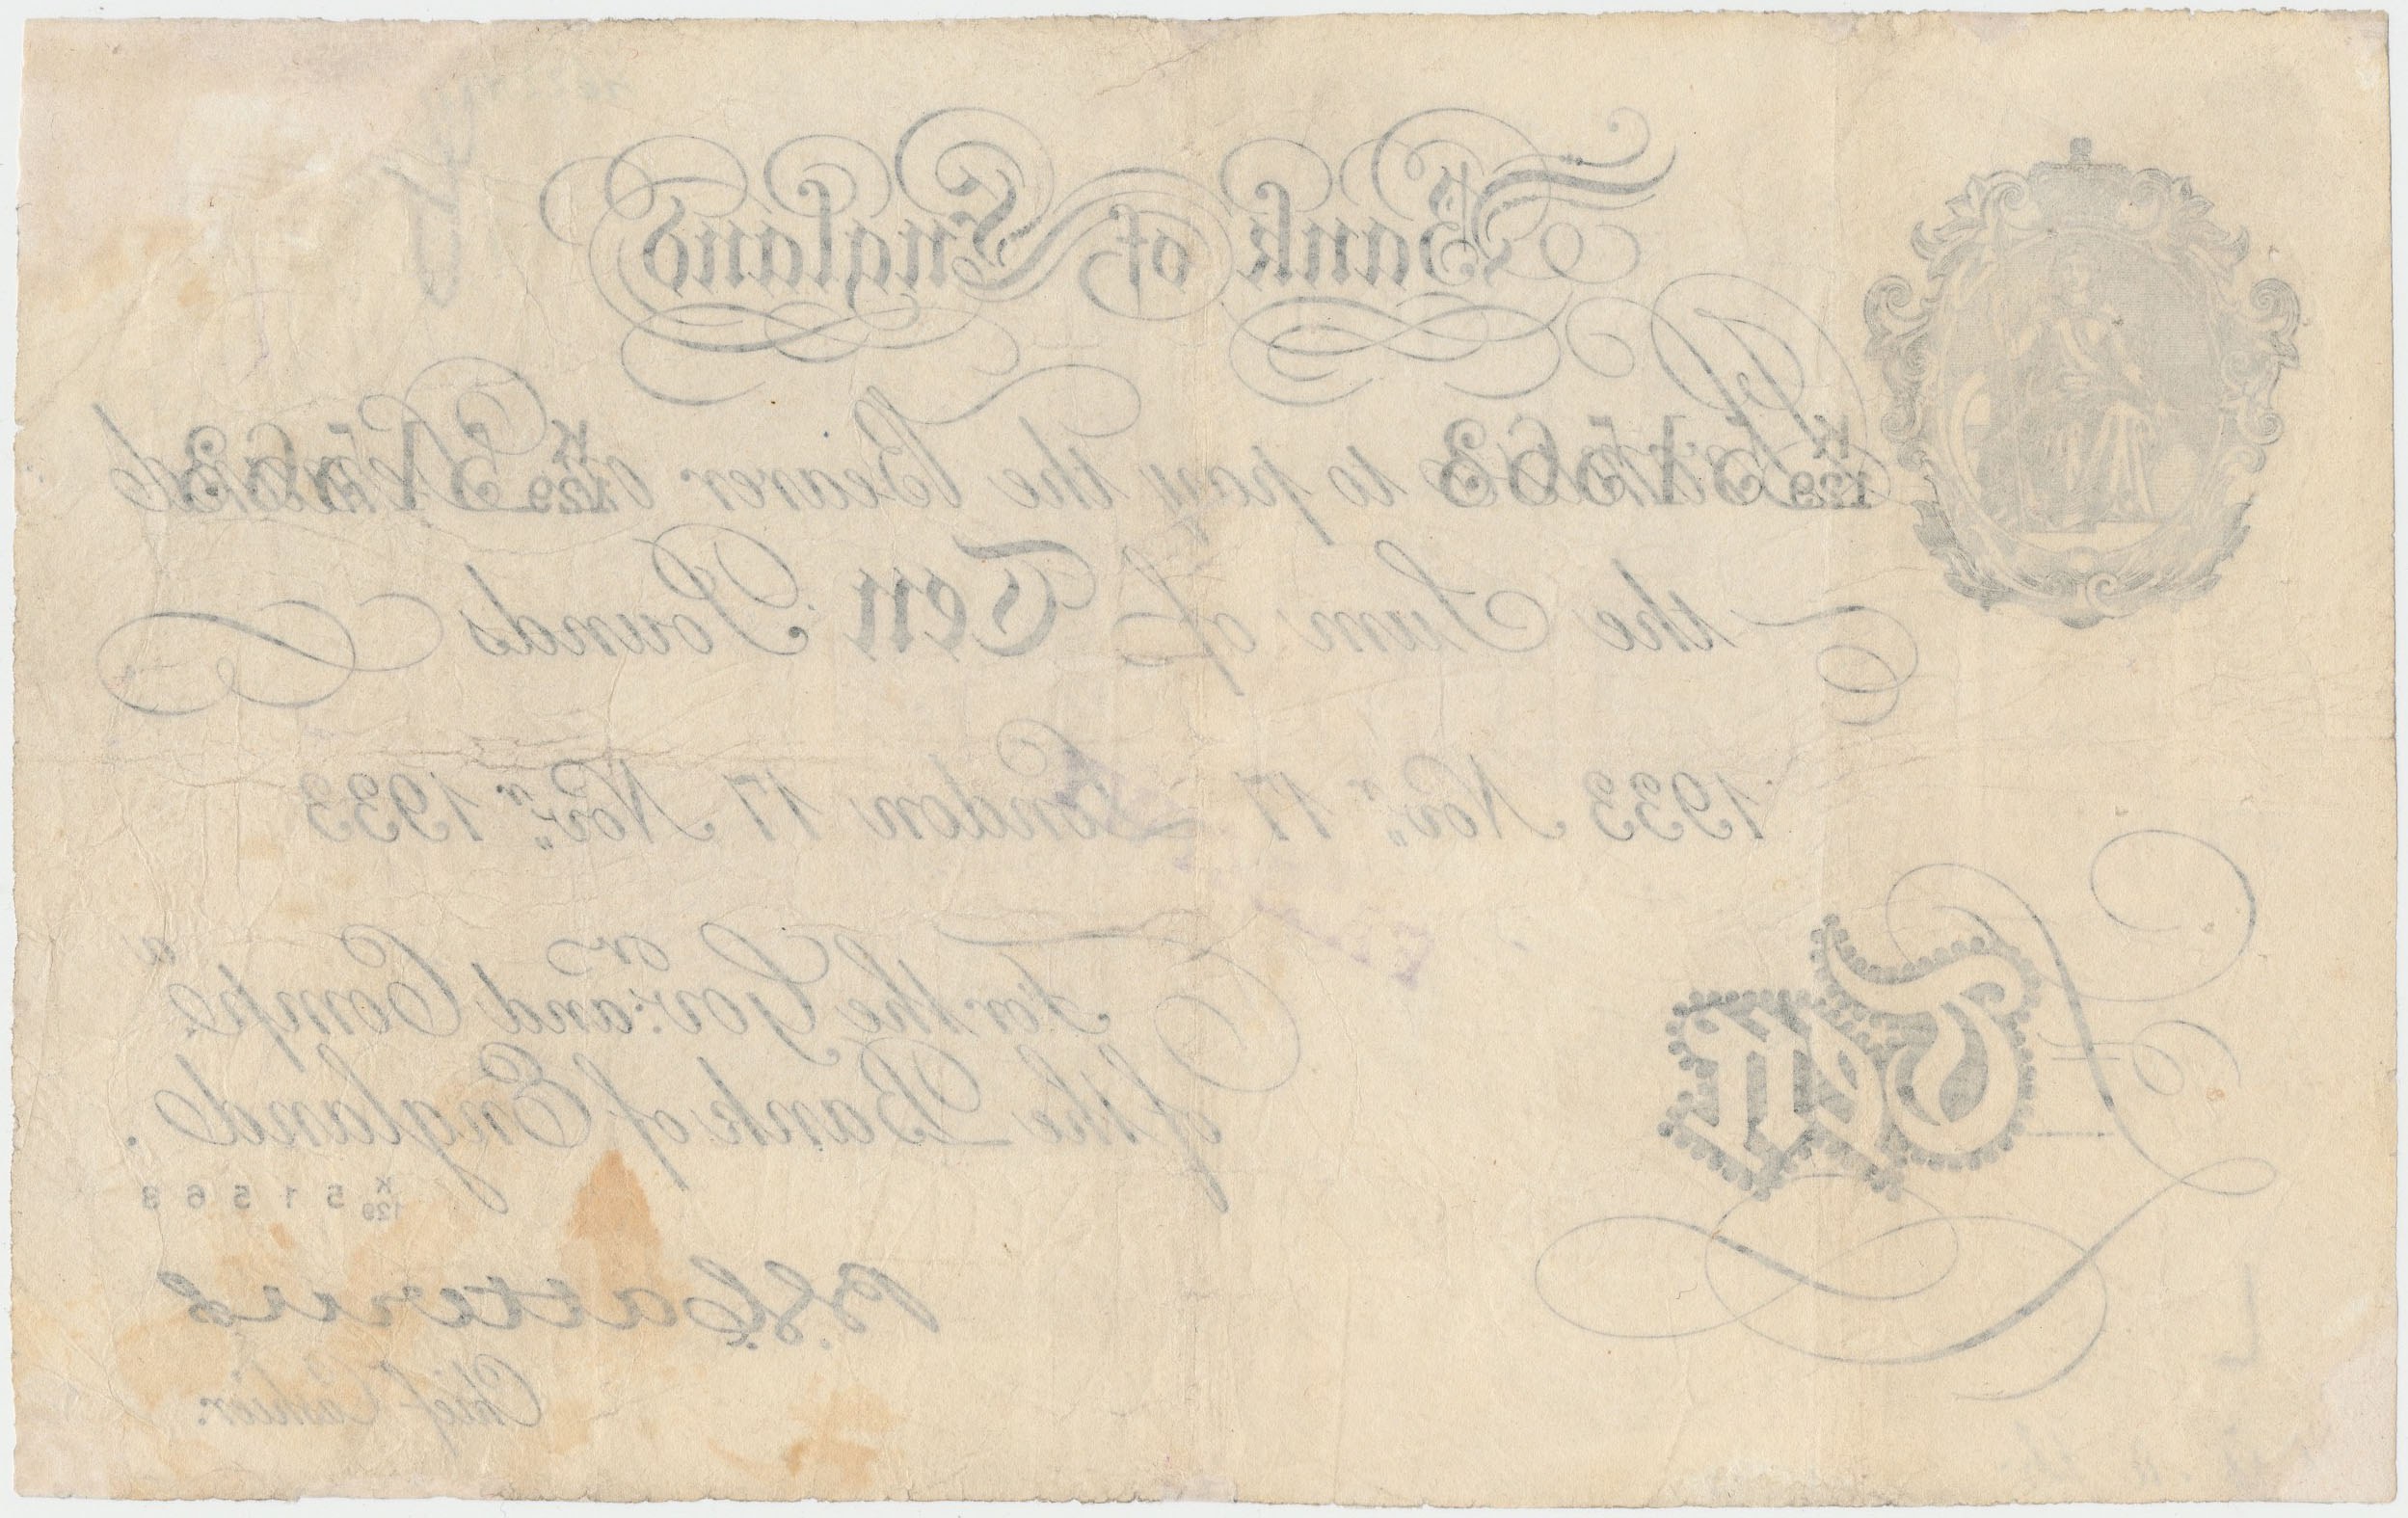 Bank of England
K
129 51563 K
129 51563
Promise to pay the Bearer on Demand
the Sum of Ten Pounds
1933 Novr. 17 London 17 Novr. 1933
For the Govr. and Compa.
of the Bank of England.
Ten
K
129 51563
B G Catterns
Chief Cashier.